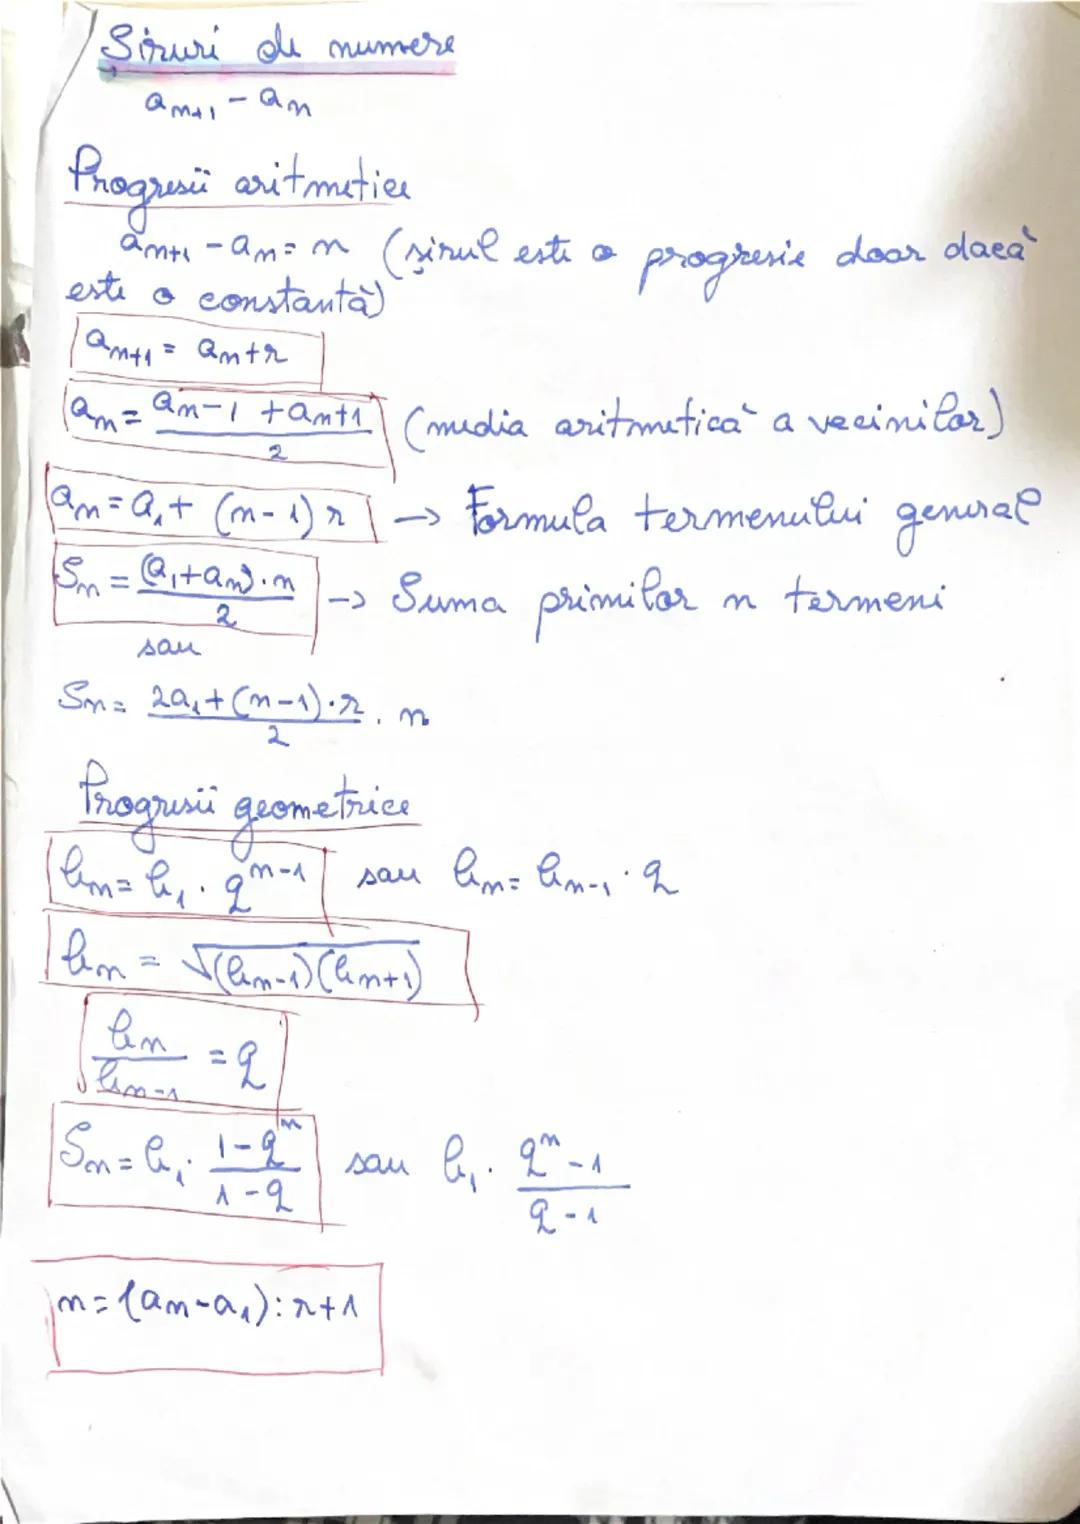 Șiruri de numere
aₙ₊₁ - aₙ
Progresii aritmetice
aₙ₊₁ - aₙ = n (șirul este o progresie doar dacă
este o constantă)
aₙ₊₁ = aₙ + r
aₙ = (aₙ₋₁ + aₙ₊₁)/2 (media aritmetică a vecinilor)
aₙ = a₁ + (n-1) r → Formula termenului general
Sₙ = ((a₁+aₙ)·n)/2 → Suma primilor n termeni
sau
Sₙ = (2a₁ + (n-1)·r)/2 · n
Progresii geometrice
bₙ = b₁ · qⁿ⁻¹ sau bₙ = bₙ₋₁ · q
bₙ = √((bₙ₋₁)(bₙ₊₁))
bₙ/bₙ₋₁ = q
Sₙ = b₁ · (1-qⁿ)/(1-q) sau b₁ · (qⁿ-1)/(q-1)
n = (aₙ-a₁) : r+1